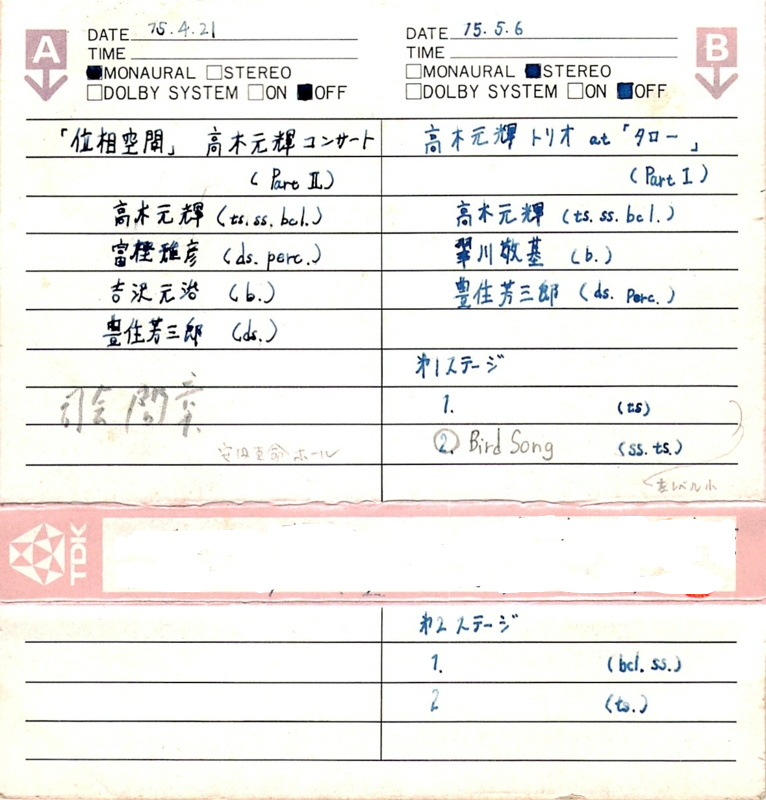 A
DATE 75.4.21
TIME
■MONAURAL □STEREO
□DOLBY SYSTEM □ON ■OFF
「位相空間」 高木元輝コンサート
(Part Ⅱ)
高木元輝 (ts.ss.bcl.)
富樫雅彦 (ds. perc.)
吉沢元治 (b.)
豊住芳三郎 (ds.)
司会 間章
安田生命ホール
B
DATE 75.5.6
TIME
□MONAURAL ■STEREO
□DOLBY SYSTEM □ON ■OFF
高木元輝トリオ at 「タロー」
(Part Ⅰ)
高木元輝 (ts.ss.bcl.)
翠川敬基 (b.)
豊住芳三郎 (ds. perc.)
第1ステージ
1. (ts)
2. Bird Song (ss.ts.)
左レベル小
TDK
第2ステージ
1. (bcl.ss.)
2 (ts.)